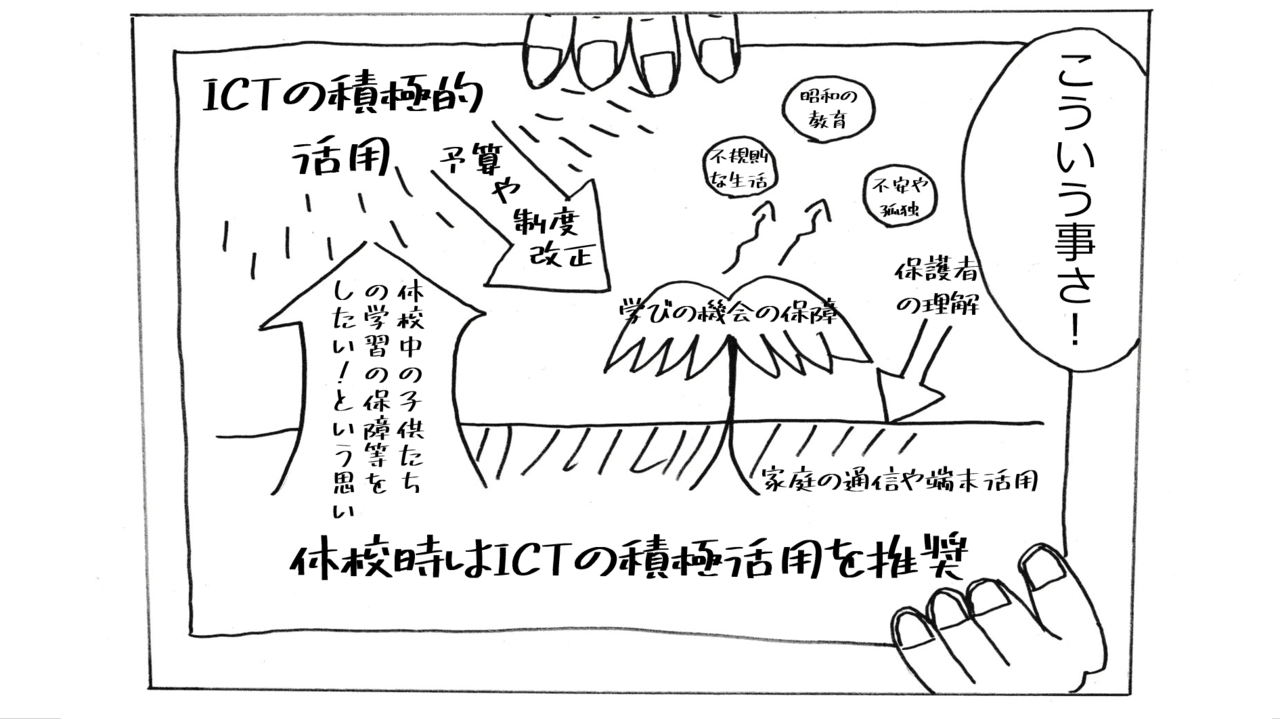 こういう事さ！
ICTの積極的
活用
予算
や
制度
改正
昭和の
教育
不規則
な生活
不安や
孤独
保護者
の理解
学びの機会の保障
休校中の子供たち
の学習の保障等を
したい！という思い
家庭の通信や端末活用
休校時はICTの積極活用を推奨